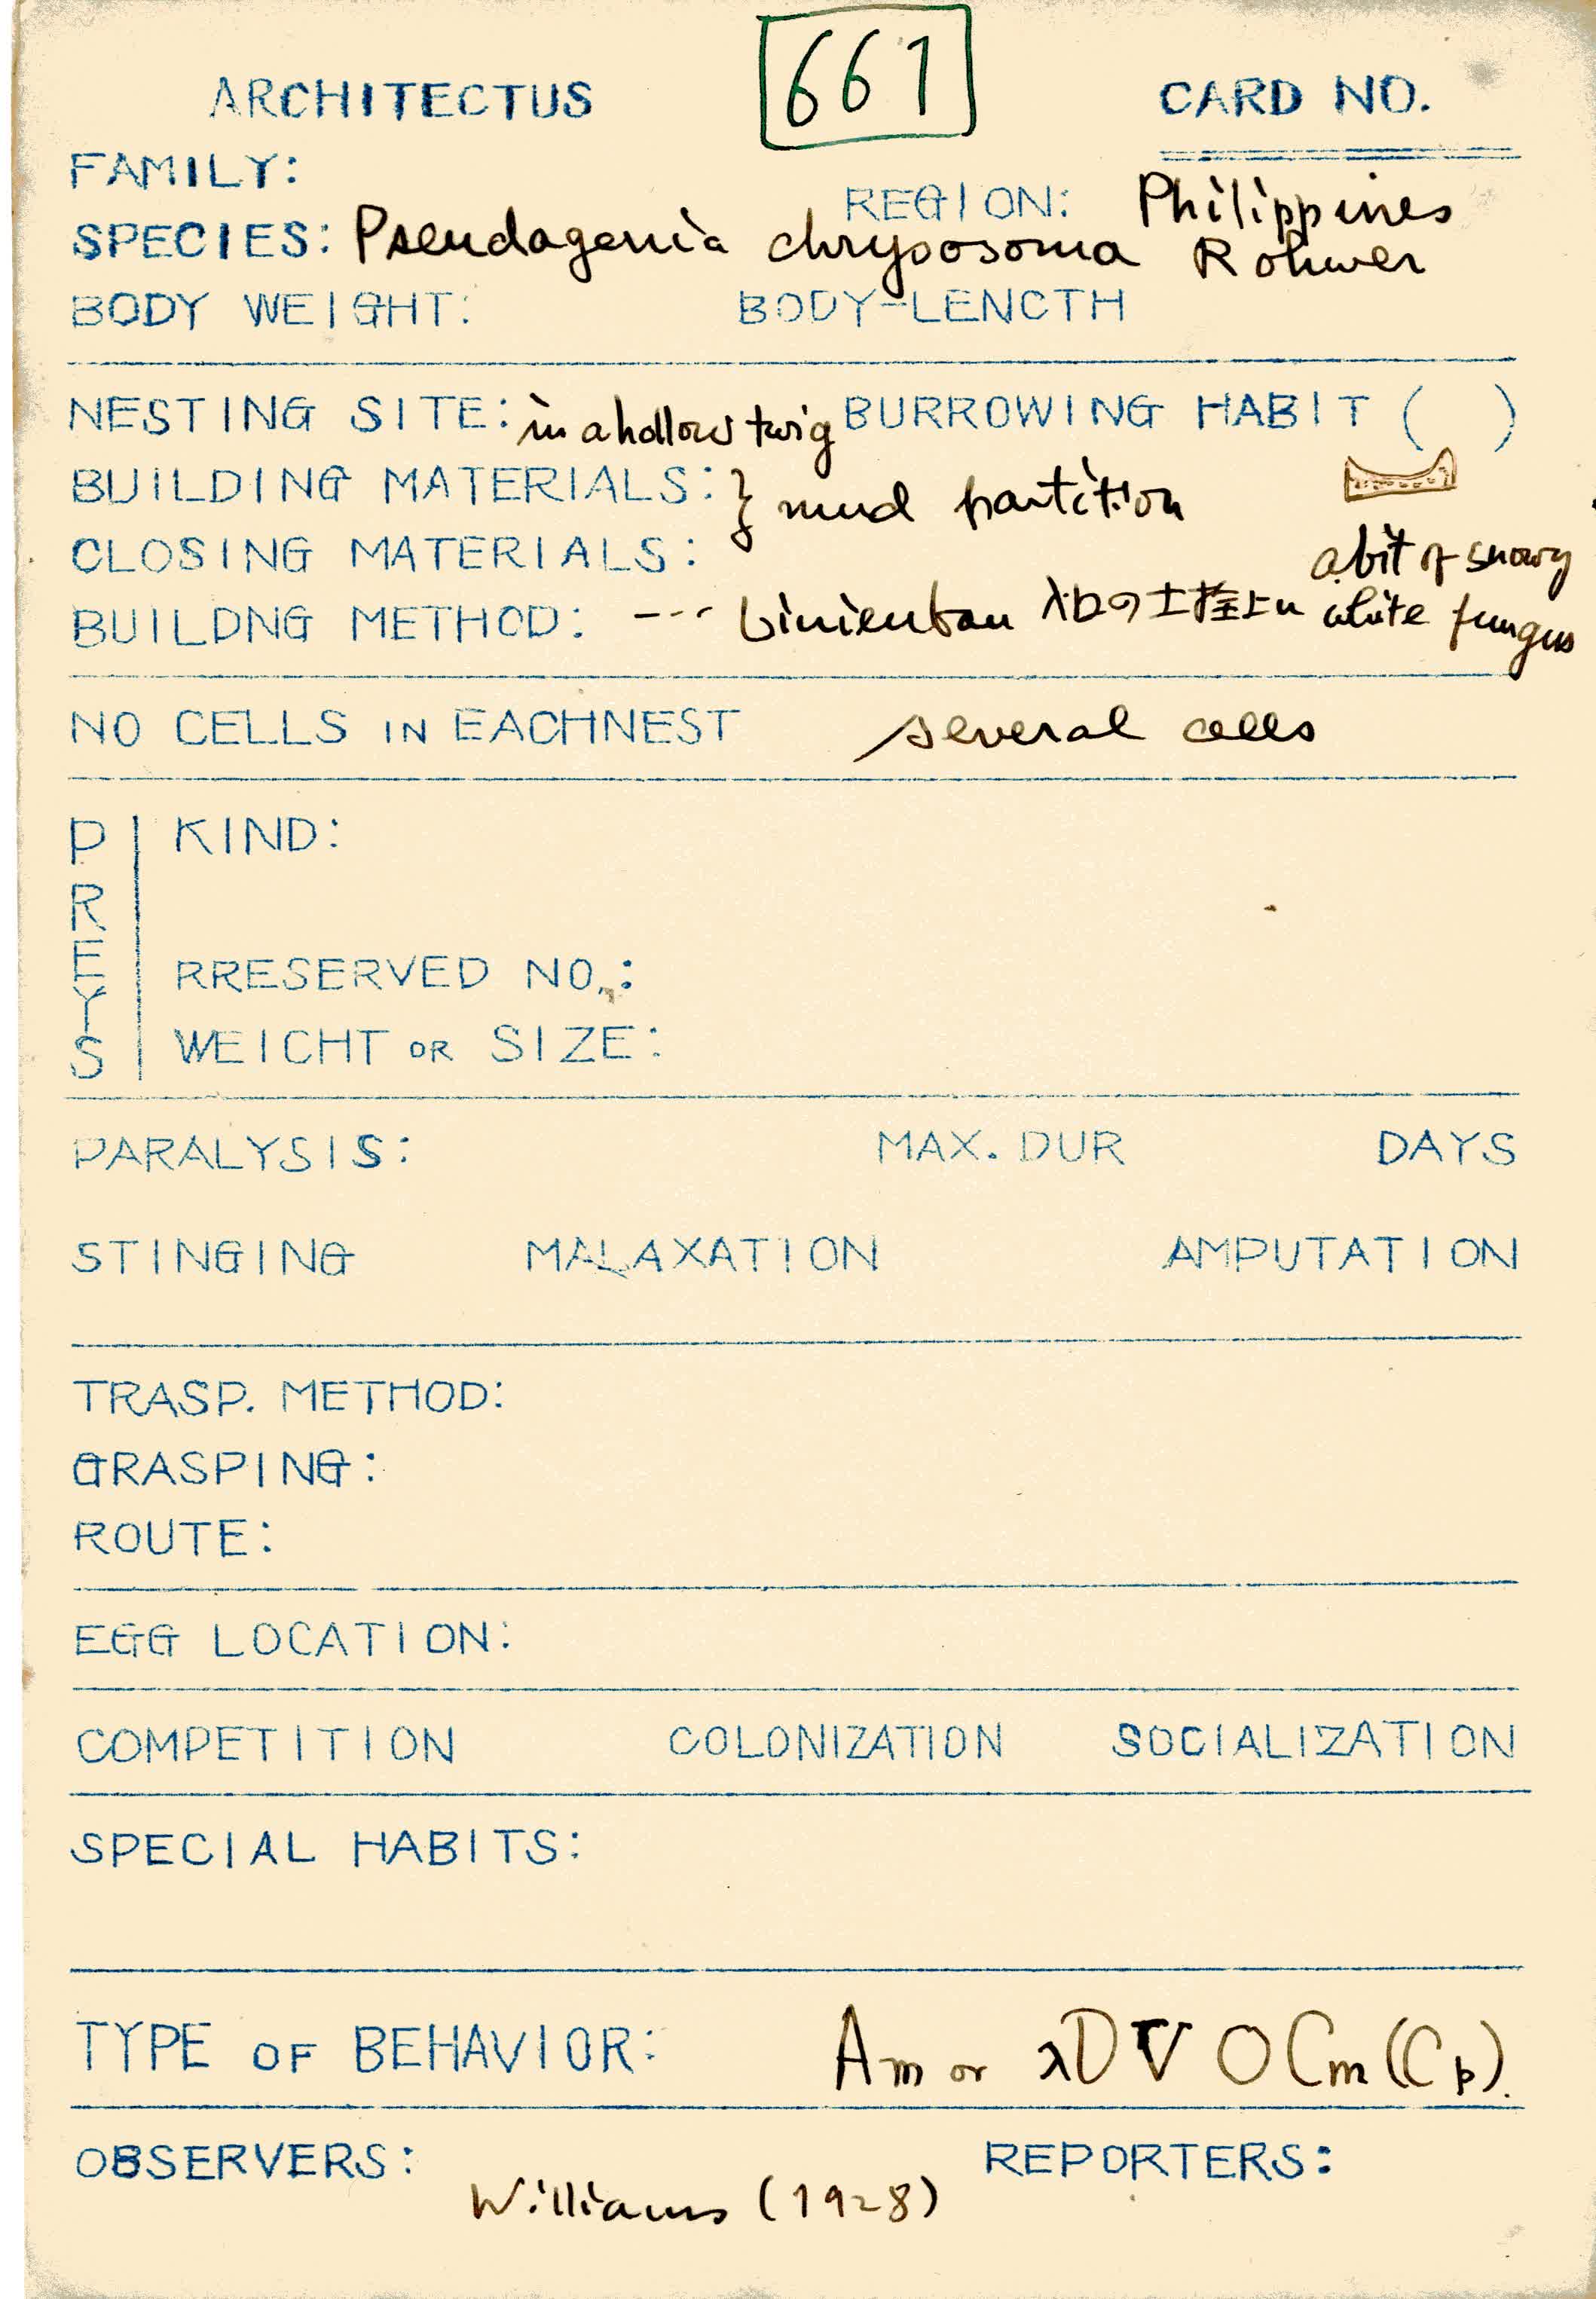 661
ARCHITECTUS CARD NO.
FAMILY:
REGION: Philippines
SPECIES: Pseudagenia chrysosoma Rohwer
BODY WEIGHT: BODY-LENCTH
NESTING SITE: in a hollow twig BURROWING HABIT ( )
BUILDING MATERIALS: } mud partition
CLOSING MATERIALS:
a bit of snowy
BUILDNG METHOD: --- 入口の土栓上に white fungus
NO CELLS IN EACHNEST several cells
PREYS
KIND:
RRESERVED NO.:
WEICHT OR SIZE:
PARALYSIS: MAX. DUR DAYS
STINGING MALAXATION AMPUTATION
TRASP. METHOD:
GRASPING:
ROUTE:
EGG LOCATION:
COMPETITION COLONIZATION SOCIALIZATION
SPECIAL HABITS:
TYPE OF BEHAVIOR: Am or λD∇OCm(Cp).
OBSERVERS: REPORTERS:
Williams (1928)